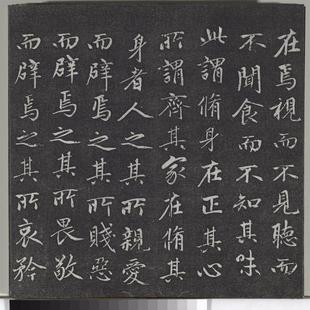 在焉視而不見聽而
不聞食而不知其味
此謂脩身在正其心
所謂齊其家在脩其
身者人之其所親愛
而辟焉之其所賤惡
而辟焉之其所畏敬
而辟焉之其所哀矜